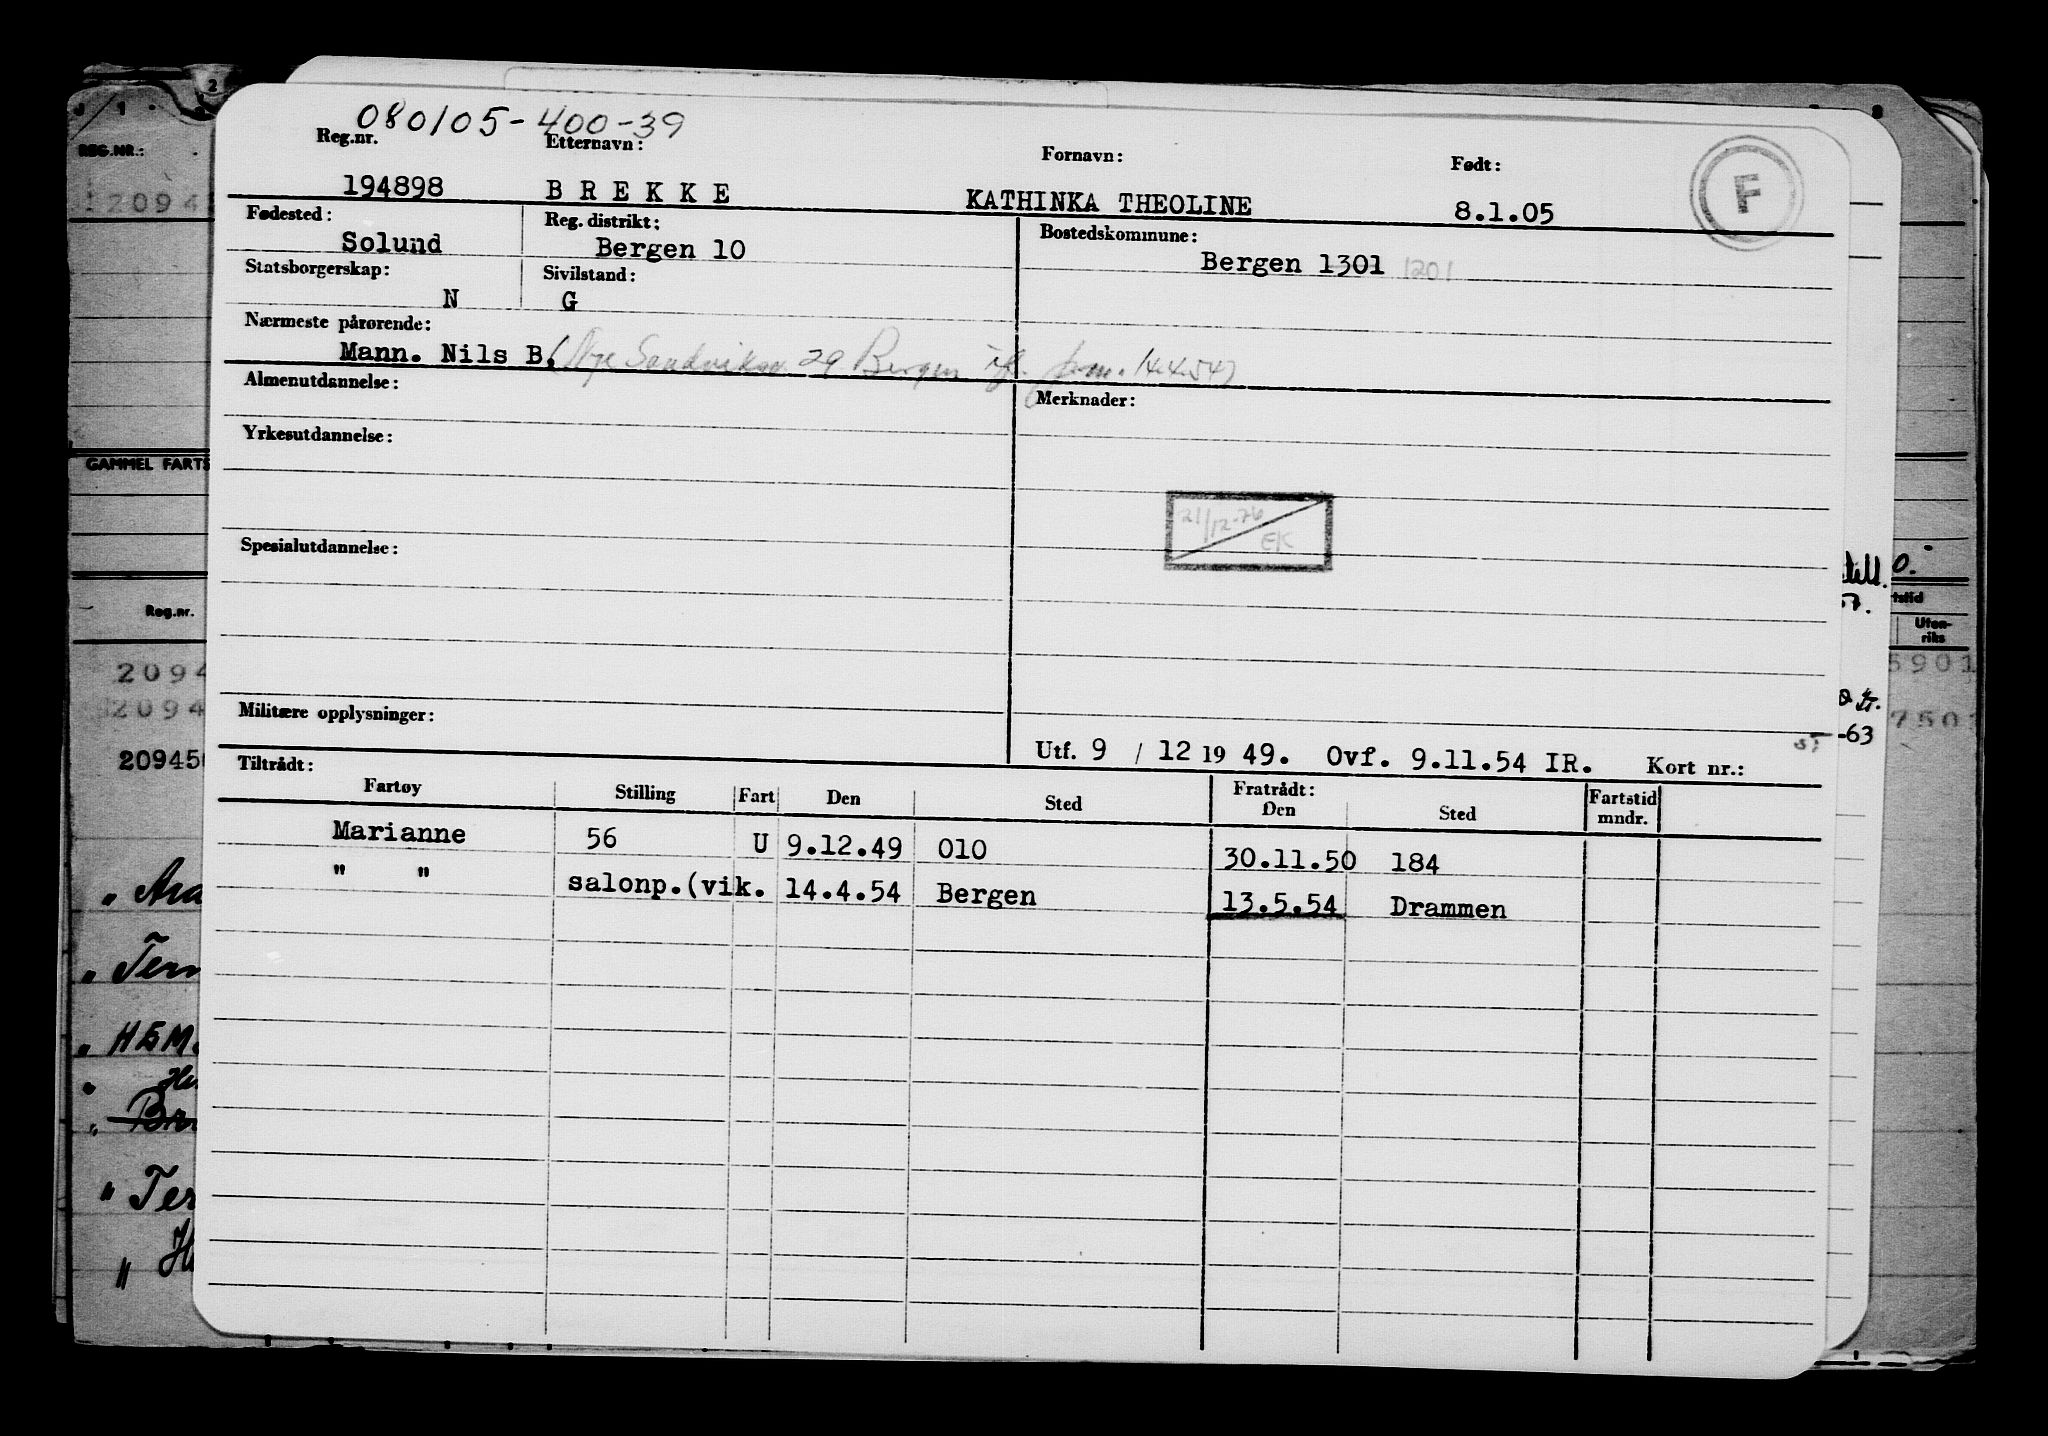 080105-400-39
Reg.nr. Etternavn: Fornavn: Født:
194898 B R E K K E KATHINKA THEOLINE 8.1.05
F
Fødested: Reg. distrikt: Bostedskommune:
Solund Bergen 10 Bergen 1301 1201
Statsborgerskap: Sivilstand:
N G
Nærmeste pårørende:
Mann. Nils B. Nye Sandviksv 29 Bergen 14.4.54)
Almenutdannelse: Merknader:
Yrkesutdannelse:
21/12-76
EK
Spesialutdannelse:
Militære opplysninger:
Utf. 9 / 12 19 49. Ovf. 9.11.54 IR. Kort nr.:
Tiltrådt: Fratrådt:
Fartøy Stilling Fart Den Sted Den Sted Fartstid mndr.
Marianne 56 U 9.12.49 010 30.11.50 184
" " salonp.(vik. 14.4.54 Bergen 13.5.54 Drammen
2
REG.NR.:
2094
GAMMEL FARTS
Reg.nr.
2094
2094
20945
" Ter
" HEM
" Ter
0.
tstid
Uten-
riks
5901
7501
-63